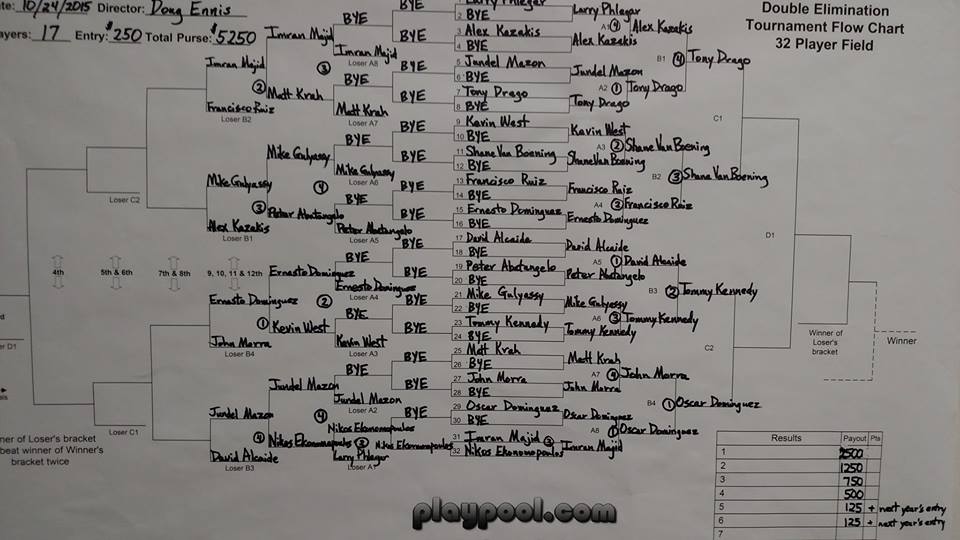 10/24/2015 Director: Doug Ennis
ayers: 17 Entry: $250 Total Purse: $5250
Double Elimination
Tournament Flow Chart
32 Player Field
BYE
BYE
BYE
BYE
BYE
BYE
BYE
BYE
BYE
BYE
BYE
BYE
BYE
BYE
BYE
BYE
BYE
BYE
BYE
BYE
BYE
Larry Phlegar
2 BYE
3 Alex Kazakis
4 BYE
5 Jundel Mazon
6 BYE
7 Tony Drago
8 BYE
9 Kevin West
10 BYE
11 Shane Van Boening
12 BYE
13 Francisco Ruiz
14 BYE
15 Ernesto Dominguez
16 BYE
17 David Alcaide
18 BYE
19 Peter Abatangelo
20 BYE
21 Mike Gulyassy
22 BYE
23 Tommy Kennedy
24 BYE
25 Matt Krah
26 BYE
27 John Morra
28 BYE
29 Oscar Dominguez
30 BYE
31 Imran Majid 3
32 Nikos Ekonomopoulos
Larry Phlegar
Alex Kazakis
Jundel Mazon
Tony Drago
Kevin West
Shane Van Boening
Francisco Ruiz
Ernesto Dominguez
David Alcaide
Peter Abatangelo
Mike Gulyassy
Tommy Kennedy
Matt Krah
John Morra
Oscar Dominguez
Imran Majid
A1 4 Alex Kazakis
A2 1 Tony Drago
A3 2 Shane Van Boening
A4 2 Francisco Ruiz
A5 1 David Alcaide
A6 3 Tommy Kennedy
A7 4 John Morra
A8 1 Oscar Dominguez
B1 4 Tony Drago
B2 3 Shane Van Boening
B3 2 Tommy Kennedy
B4 1 Oscar Dominguez
C1
C2
D1
Winner of
Loser's
bracket
Winner
Imran Majid
Loser A8
Matt Krah
Loser A7
Mike Gulyassy
Loser A6
Peter Abatangelo
Loser A5
Ernesto Dominguez
Loser A4
Kevin West
Loser A3
Jundel Mazon
Loser A2
Nikos Ekonomopoulos
3 Nikos Ekonomopoulos
Larry Phlegar
Imran Majid
3
2 Matt Krah
Mike Gulyassy
4
3 Peter Abatangelo
Ernesto Dominguez
2
1 Kevin West
Jundel Mazon
4
4 Nikos Ekonomopoulos
Imran Majid
Francisco Ruiz
Loser B2
Mike Gulyassy
Alex Kazakis
Loser B1
Ernesto Dominguez
John Morra
Loser B4
Jundel Mazon
David Alcaide
Loser B3
Loser C2
Loser C1
4th
5th & 6th
7th & 8th
9, 10, 11 & 12th
er D1
ner of Loser's bracket
beat winner of Winner's
bracket twice
Results Payout Pts
1 2500
2 1250
3 750
4 500
5 125 + next year's entry
6 125 + next year's entry
7
playpool.com